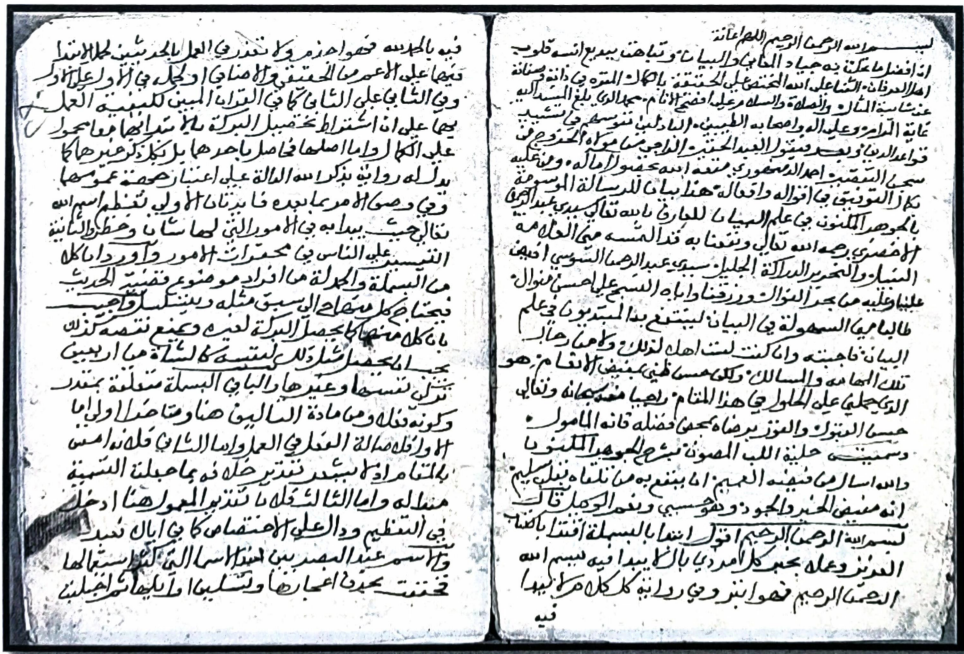 بسم الله الرحمن الرحيم اللهم اعانة
ان افضل ما نطقت به جياد المعاني والبيان وتباهت ببديع انسه قلوب
اهل العرفان الثنا على الله المختص على الحقيقة بالكمال المنزه في ذاته وصفاته
عن شايبة المثال والصلاة والسلام على افصح الانام محمد الذي بلغ المسند اليه
غاية المرام وعلى اله واصحابه الطيبين الباذلين نفوسهم في تشييد
قواعد الدين وبعد فيقول العبد الحقير الراجي من مولاه الخروج من
سجن التقصير احمد الدمنهوري منحه الله تحقيق اماله ومن عليه
بكمال التوفيق في اقواله وافعاله هذا بيان للرسالة الموسومة
بالجوهر المكنون في علم البيان للعارف بالله تعالى سيدي عبد الرحمن
الاخضري رحمه الله تعالى ونفعنا به قد التمسه مني العلامة
النبيل والتحرير الدراكة الجليل سيدي عبد الرحمن السوسي افيض
علينا وعليه من بحر النوال ورزقنا واياه النسج على احسن منوال
طالبا مني السهولة في البيان لينتفع به المبتديون في علم
البيان فاجبته وان كنت لست اهلا لذلك ولا من رجال
تلك المهامه والمسالك ولكن حسن ظني بمفيض الانعام هو
الذي حملني على الحلول في هذا المقام راجيا منه سبحانه وتعالى
حسن القبول والفوز برضاه بمحض فضله فانه المامول
وسميته حلية اللب المصون بشرح الجوهر المكنون
والله اسال من فيضه العميم اما ينفع به من تلقاه بقلب سليم
انه مفيض الخير والجود وهو حسبي ونعم الوكيل قال
بسم الله الرحمن الرحيم اقول ابتدا بالبسملة اقتدا بالكتاب
العزيز وعملا بخبر كل امر ذي بال لا يبدا فيه ببسم الله
الرحمن الرحيم فهو ابتر وفي رواية كل كلام لا يبدا
فيه
فيه بالحمد لله فهو اجذم ولا تعذر في العمل بالحديثين لحمل الابتدا
فيهما على الاعم من الحقيقي والاضافي او لحمله في الاول على الاول
وفي الثاني على الثاني كما في القران المبين لكيفية العمل
بهما على ان اشتراط تحصيل البركة بالابتدا بهما معا محمول
على الكمال واما اصلها فحاصل باحدهما بل بكل ذكر غيرهما كما
يدل له رواية بذكر الله الدالة على اعتبار جهة عمومهما
وفي وصف الامر بما بعده فايدتان الاولى تعظيم اسم الله
تعالى حيث يبدا به في الامور التي لها شان وخطر والثانية
التيسير على الناس في محقرات الامور واورد ان كلا
من البسملة والحمدلة من افراد موضوع قضية الحديث
فيحتاج كل منهما الى سبق مثله ويتسلسل واجيب
بان كلا منهما كما يحصل البركة لغيره ويمنع نقصه كذلك
يجب ان يحصل مثل ذلك لنفسه كالشاة من اربعين
تزكي نفسها وغيرها والبا في البسملة متعلقة بمقدر
وكونه فعلا ومن مادة التاليف هنا ومتاخرا اولى اما
الاول فلاصالة الفعل في العمل واما الثاني فلانه امس
بالمقام اذ لا يشعر تقدير خلافه بما جعلت التسمية
مبدا له واما الثالث فلان تقديم المعمول هنا ادخل
في التعظيم ودال على الاختصاص كما في اياك نعبد
والاسم عند البصريين احد الاسما التي كثر استعمالها
فخففت بحذف اعجازها وتسكين اوايلها ثم اجتلبت